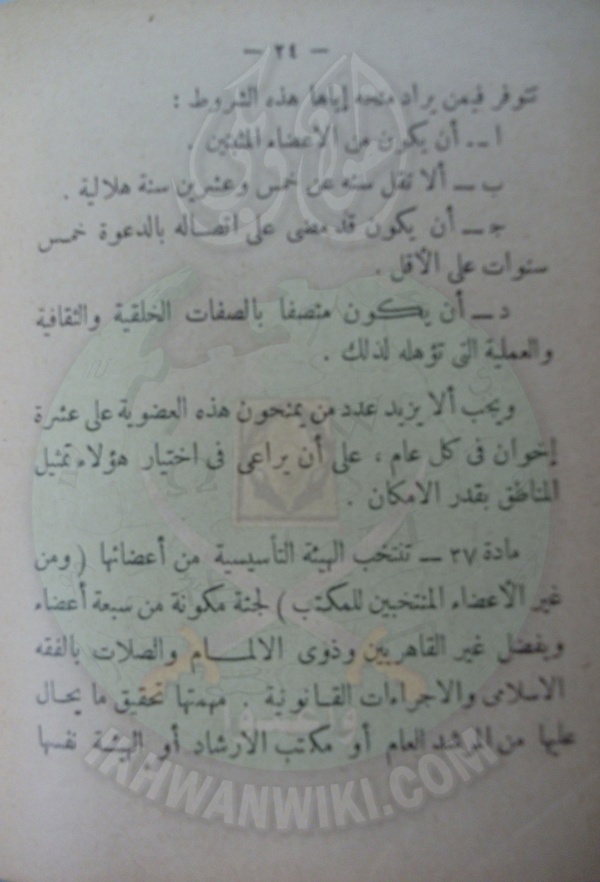 — ٢٤ —
تتوفر فيمن يراد منحه إياها هذه الشروط :
ا — أن يكون من الأعضاء المثبتين .
ب — ألا تقل سنه عن خمس وعشرين سنة هلالية .
جـ — أن يكون قد مضى على اتصاله بالدعوة خمس
سنوات على الأقل .
د — أن يكون متصفا بالصفات الخلقية والثقافية
والعملية التى تؤهله لذلك .
ويجب ألا يزيد عدد من يمنحون هذه العضوية على عشرة
إخوان فى كل عام ، على أن يراعى فى اختيار هؤلاء تمثيل
المناطق بقدر الامكان .
مادة ٣٧ — تنتخب الهيئة التأسيسية من أعضائها ( ومن
غير الأعضاء المنتخبين للمكتب ) لجنة مكونة من سبعة أعضاء
ويفضل غير القاهريين وذوى الالمام والصلات بالفقه
الاسلامى والاجراءات القانونية . مهمتها تحقيق ما يحال
عليها من المرشد العام أو مكتب الارشاد أو الهيئة نفسها
إخوان ويكي
وأعدوا
IKHWANWIKI.COM